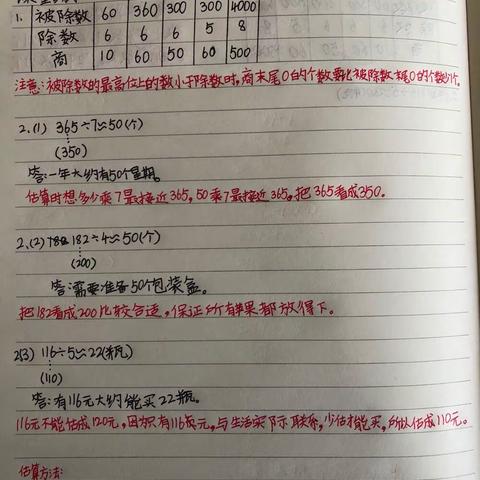 1. 被除数 60 360 300 300 4000
除数 6 6 6 5 8
商 10 60 50 60 500
注意:被除数的最高位上的数小于除数时,商末尾0的个数要比被除数末尾0的个数少1个。
2.(1) 365÷7≈50(个)
(350)
答:一年大约有50个星期。
估算时想多少乘7最接近365,50乘7最接近365,把365看成350.
2.(2) 182÷4≈50(个)
(200)
答:需要准备50个包装盒。
把182看成200比较合适,保证所有苹果都放得下。
2(3) 116÷5≈22(瓶)
(110)
答:有116元大约能买22瓶。
116元不能估成120元,因为只有116元,与生活实际联系,少估才能买,所以估成110元。
估算方法: